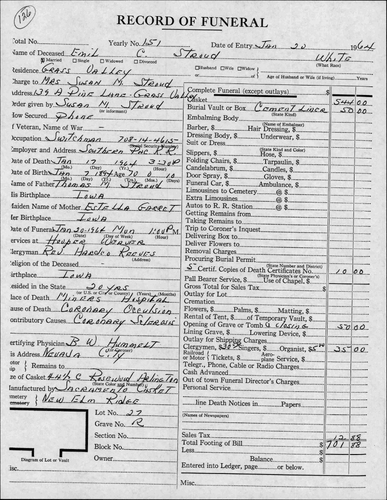 126
RECORD OF FUNERAL
Total No. Yearly No. 151 Date of Entry Jan 20 1964
Name of Deceased Emil C. Stroud White
Married Single Widowed Divorced Husband Wife Widow
(What Race)
Residence Grass Valley
Age of Husband or Wife (if living) Years
Charge to Mrs Susan M Stroud
Address 139 A Pine Lane - Grass Valley
Order given by Susan M. Stroud
How Secured Phone
If Veteran, Name of War -
Occupation Switchman 708-14-4615
Employer and Address Southern Pac R.R.
Date of Death Jan 17 1964 3:30 PM
Date of Birth Jan 7 1894 Age 70 0 10
Name of Father Thomas M Stroud
His Birthplace Iowa
Maiden Name of Mother Estella Garret
Her Birthplace Iowa
Date of Funeral Jan 20-1964 Mon 1:00 PM
Services at Hooper Weaver
Clergyman Rev Harold Reeves
Religion of the Deceased -
Birthplace Iowa
Resided in the State 20 yrs
Place of Death Miners Hospital
Cause of Death Coronary Occlusion
Contributory Causes Coronary Sclerosis
Certifying Physician B W Hummelt
His Address Nevada City
Remains to
Size of Casket Rosewood Arlington
Sacramento Casket
Cemetery New Elm Ridge
Lot No. 27
Grave No. R
Section No.
Block No.
Owner
Diagram of Lot or Vault
Complete Funeral (except outlays) $
Casket 544 00
Burial Vault or Box Cement Liner 50 00
(State Kind)
Embalming Body
(Name of Embalmer)
Barber, $ Hair Dressing, $
Dressing Body, $ Underwear, $
Suit or Dress
(State Kind and Color)
Slippers, $ Hose, $
Folding Chairs, $ Tarpaulin, $
Candelabrum, $ Candles, $
Door Spray, $ Gloves, $
Funeral Car, $ Ambulance, $
Limousines to Cemetery @ $
Extra Limousines @ $
Autos to R. R. Station @ $
Getting Remains from
Taking Remains to
Trip to Coroner's Inquest
Delivering Box to
Deliver Flowers to
Removal Charges
Procuring Burial Permit
(State Number and District)
5 Certif. Copies of Death Certificates No. 10 00
(State Physician's or Coroner's)
Pall Bearer Service, $ Use of Chapel, $
Gross Total for Sales Tax $
Outlay for Lot
Cremation
Flowers, $ Palms, $ Matting, $
Rental of Tent, $ of Temporary Vault, $
Opening of Grave or Tomb 50 00
Lining Grave, $ Lowering Device, $
Outlay for Shipping Charges
Clergymen, $ 20.00 Singers, $ Organist, $ 5.00 25 00
Railroad or Motor Tickets, $ Aeroplane Service, $
Telegr., Phone, Cable or Radio Charges
Cash Advanced
Out of town Funeral Director's Charges
Personal Service
line Death Notices in Papers
(Names of Newspapers)
Sales Tax 12 88
Total Footing of Bill $ 701 88
Less
Balance $
Entered into Ledger, page or below.
Misc.